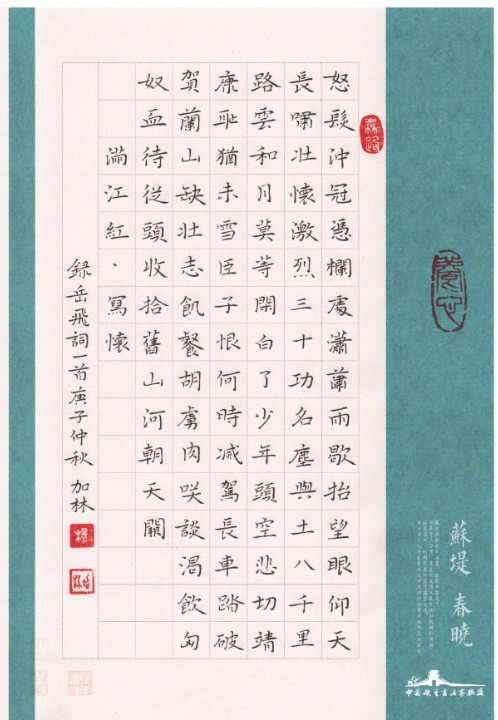 怒髮沖冠憑欄處瀟蕭雨歇抬望眼仰天
長嘯壯懷激烈三十功名塵與土八千里
路雲和月莫等閑白了少年頭空悲切靖
康耻猶未雪臣子恨何時减駕長車踏破
賀蘭山缺壯志飢餐胡虜肉咲談渴飲匈
奴血待從頭收拾舊山河朝天闕
滿江紅·寫懷
錄岳飛詞一首庚子仲秋 加林
養心
蘇堤 春曉